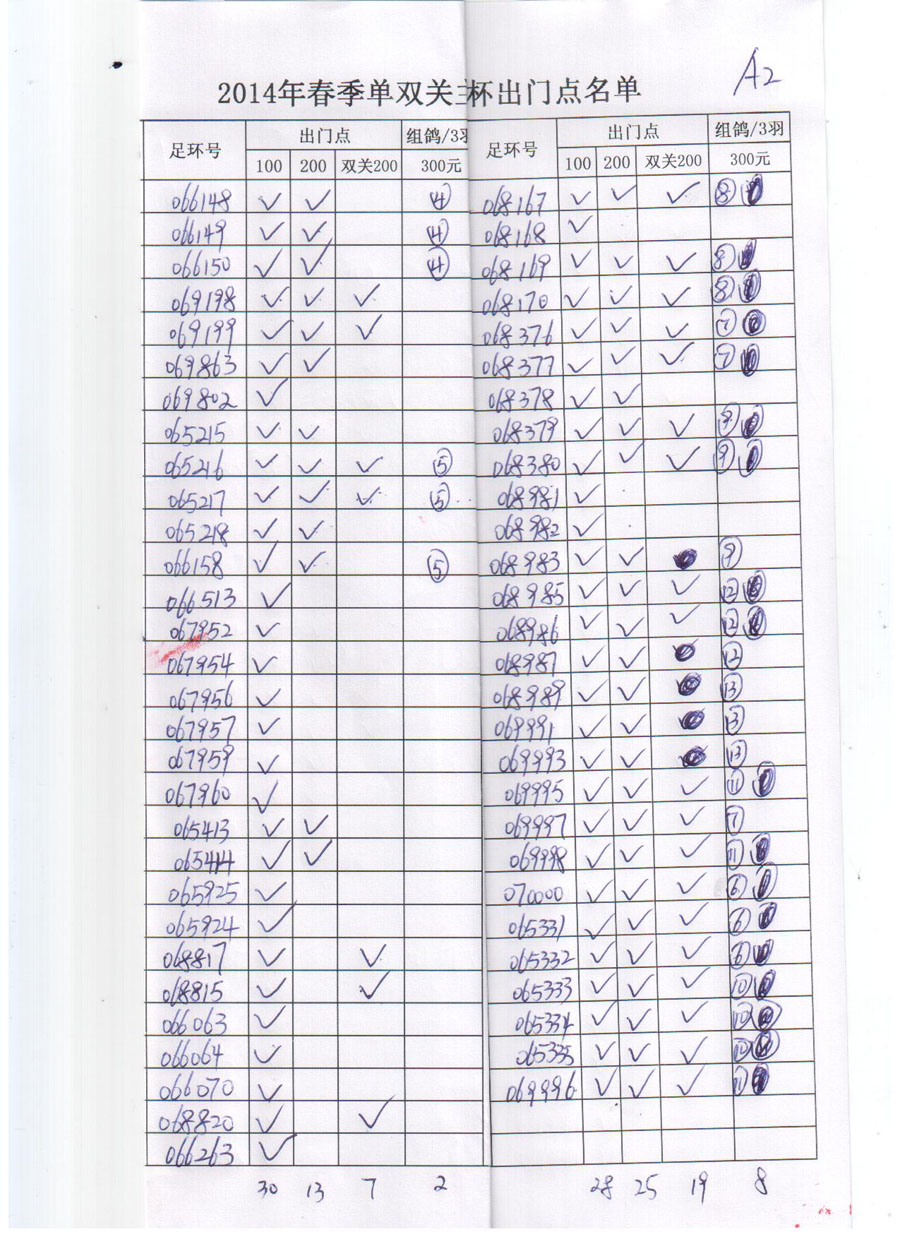 A2
2014年春季单双关主杯出门点名单
足环号 出门点 组鸽/3羽 足环号 出门点 组鸽/3羽
100 200 双关200 300元 100 200 双关200 300元
066148 ✓ ✓ ④ 068167 ✓ ✓ ✓ ⑧
066149 ✓ ✓ ④ 068168 ✓
066150 ✓ ✓ ④ 068169 ✓ ✓ ✓ ⑧
069198 ✓ ✓ ✓ 068170 ✓ ✓ ✓ ⑧
069199 ✓ ✓ ✓ 068376 ✓ ✓ ✓ ⑦
069863 ✓ ✓ 068377 ✓ ✓ ✓ ⑦
069802 ✓ 068378 ✓ ✓
065215 ✓ ✓ 068379 ✓ ✓ ✓ ⑨
065216 ✓ ✓ ✓ ⑤ 068380 ✓ ✓ ✓ ⑨
065217 ✓ ✓ ✓ ⑤ 068981 ✓
065218 ✓ ✓ 068982 ✓
066158 ✓ ✓ ⑤ 068983 ✓ ✓ ⑨
066513 ✓ 068985 ✓ ✓ ✓ ⑫
067952 ✓ 068986 ✓ ✓ ✓ ⑫
067954 ✓ 068987 ✓ ✓ ⑫
067956 ✓ 068989 ✓ ✓ ⑬
067957 ✓ 069991 ✓ ✓ ⑬
067959 ✓ 069993 ✓ ✓ ⑬
067960 ✓ 069995 ✓ ✓ ✓ ⑪
065413 ✓ ✓ 069997 ✓ ✓ ✓ ⑦
065414 ✓ ✓ 069998 ✓ ✓ ✓ ⑪
065925 ✓ 070000 ✓ ✓ ✓ ⑥
065924 ✓ 065331 ✓ ✓ ✓ ⑥
068817 ✓ ✓ 065332 ✓ ✓ ✓ ⑥
068815 ✓ ✓ 065333 ✓ ✓ ✓ ⑩
066063 ✓ 065334 ✓ ✓ ✓ ⑩
066064 ✓ 065335 ✓ ✓ ✓ ⑩
066070 ✓ 069996 ✓ ✓ ✓ ⑪
068820 ✓ ✓
066263 ✓
30 13 7 2 28 25 19 8